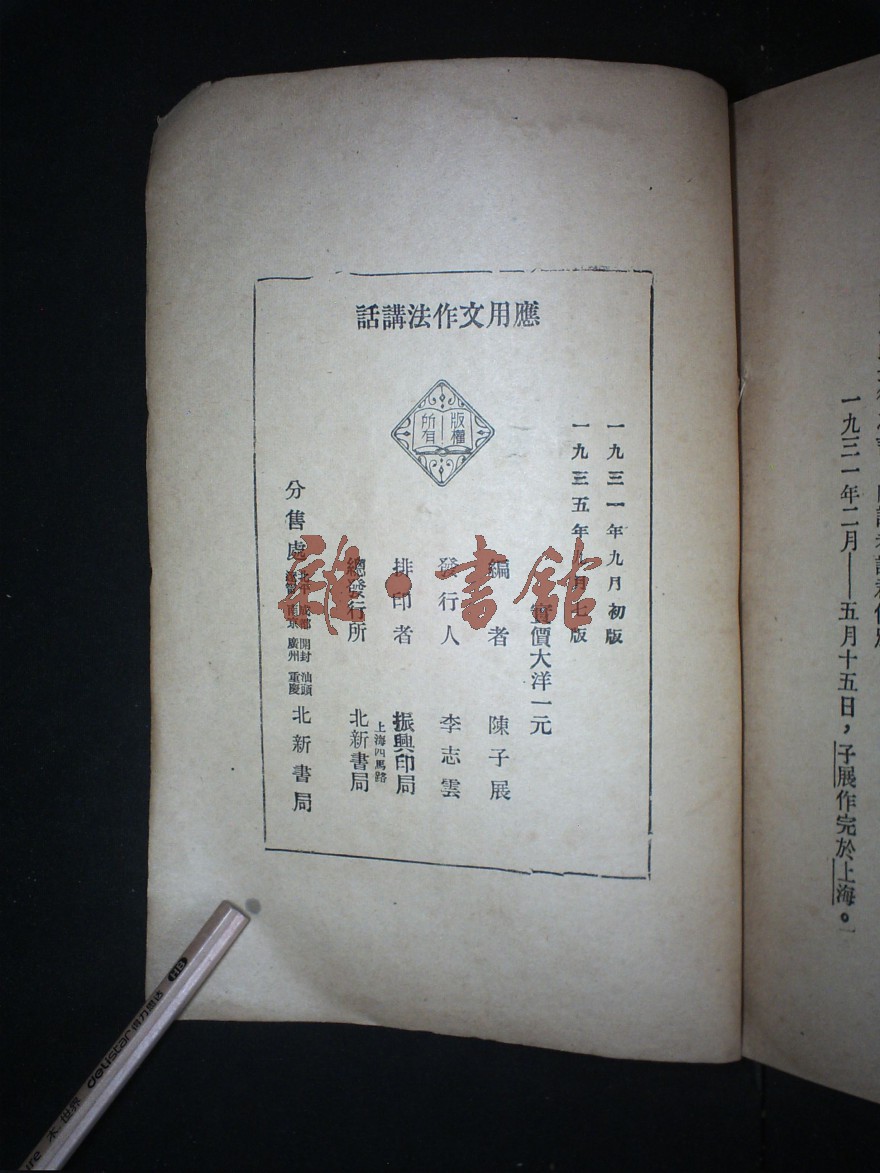 應用文作法講話
版權
所有
一九三一年九月初版
一九三五年九月七版
實價大洋一元
編者 陳子展
發行人 李志雲
排印者 振興印局
總發行所 上海四馬路 北新書局
分售處 北平 成都 開封 汕頭
南京 廣州 重慶
北新書局
一九三一年二月——五月十五日,子展作完於上海。
雜·書館
delistar 得力思达 HB
木 世界